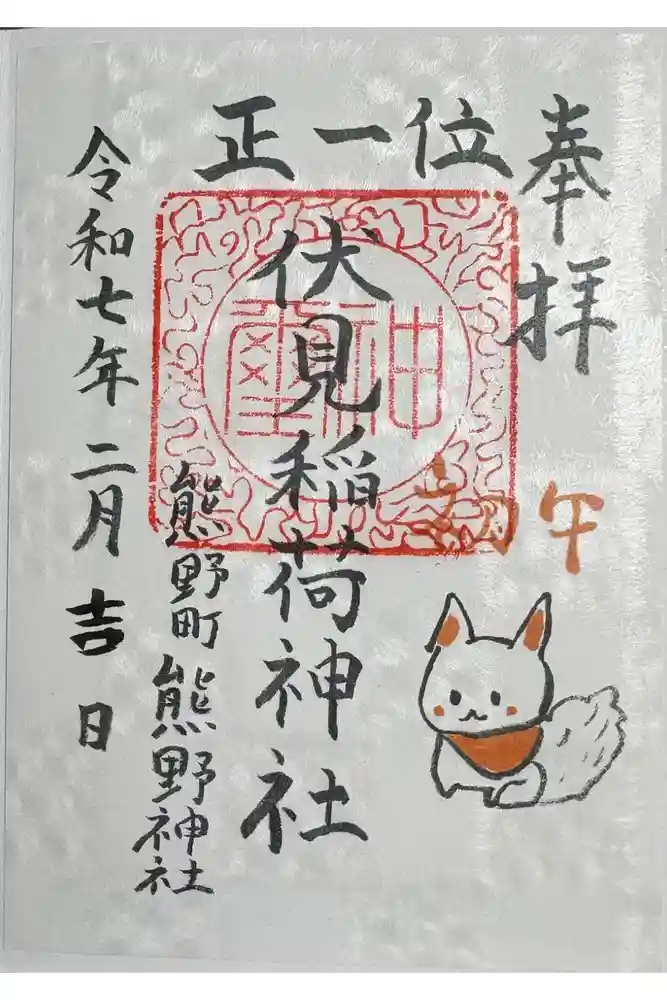 奉拝
正一位
伏見稲荷神社
初午
熊野町熊野神社
令和七年二月吉日